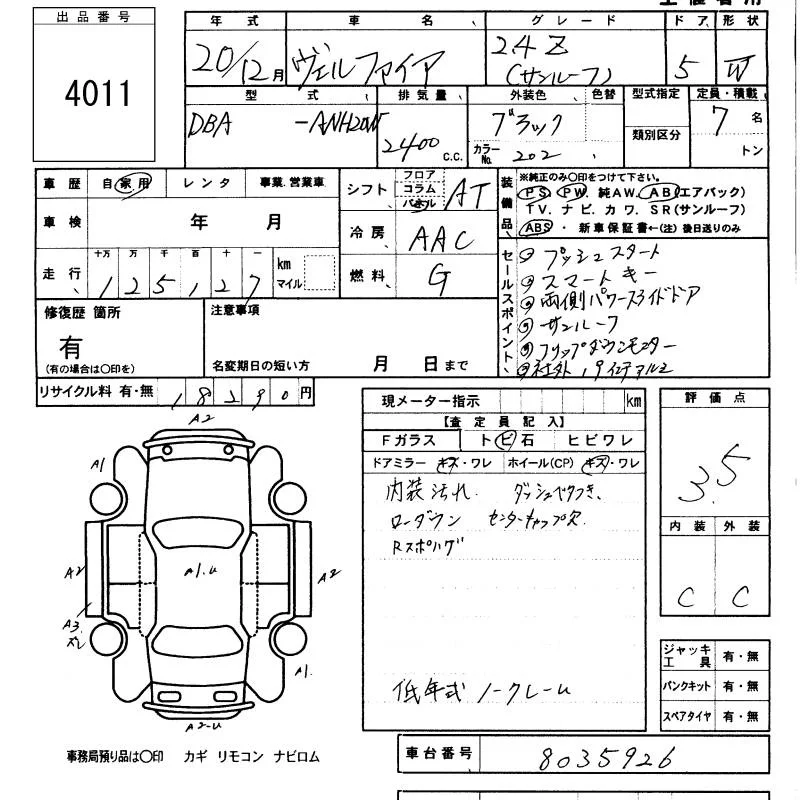 出品番号
4011
年式 車名 グレード ドア 形状
20/12月 ヴェルファイア 2.4Z (サンルーフ) 5 W
型式 排気量 外装色 色替 型式指定 定員・積載
DBA -ANH20W 2400 c.c. ブラック 類別区分 7 名
カラーNo. 202 トン
車歴 自家用 レンタ 事業.営業車
車検 年 月
走行 十万 万 千 百 十 一
1 2 5 1 2 7 km マイル
シフト フロア コラム パネル AT
冷房 AAC
燃料 G
装備品
※純正のみ○印をつけて下さい。
PS. PW. 純AW. AB(エアバック)
TV. ナビ. カワ. SR(サンルーフ)
ABS ・ 新車保証書←(注) 後日送りのみ
セールスポイント
プッシュスタート
スマートキー
両側パワースライドドア
サンルーフ
フリップダウンモニター
社外 19インチアルミ
修復歴 箇所
有
(有の場合は○印を)
注意事項
名変期日の短い方 月 日 まで
リサイクル料 有・無 18290円
現メーター指示 km
【査定員記入】
Fガラス トビ石 ヒビワレ
ドアミラー キズ・ワレ ホイール(CP) キズ・ワレ
内装汚れ. ダッシュベタつき.
ローダウン センターキャップ欠.
Rスポハゲ
低年式 ノークレーム
評価点
3.5
内装 外装
C C
ジャッキ工具 有・無
パンクキット 有・無
スペアタイヤ 有・無
A2
A1
A2
A1.U
A2
A3
ズレ
A1.
A2-U
事務局預り品は○印 カギ リモコン ナビロム
車台番号 8035926